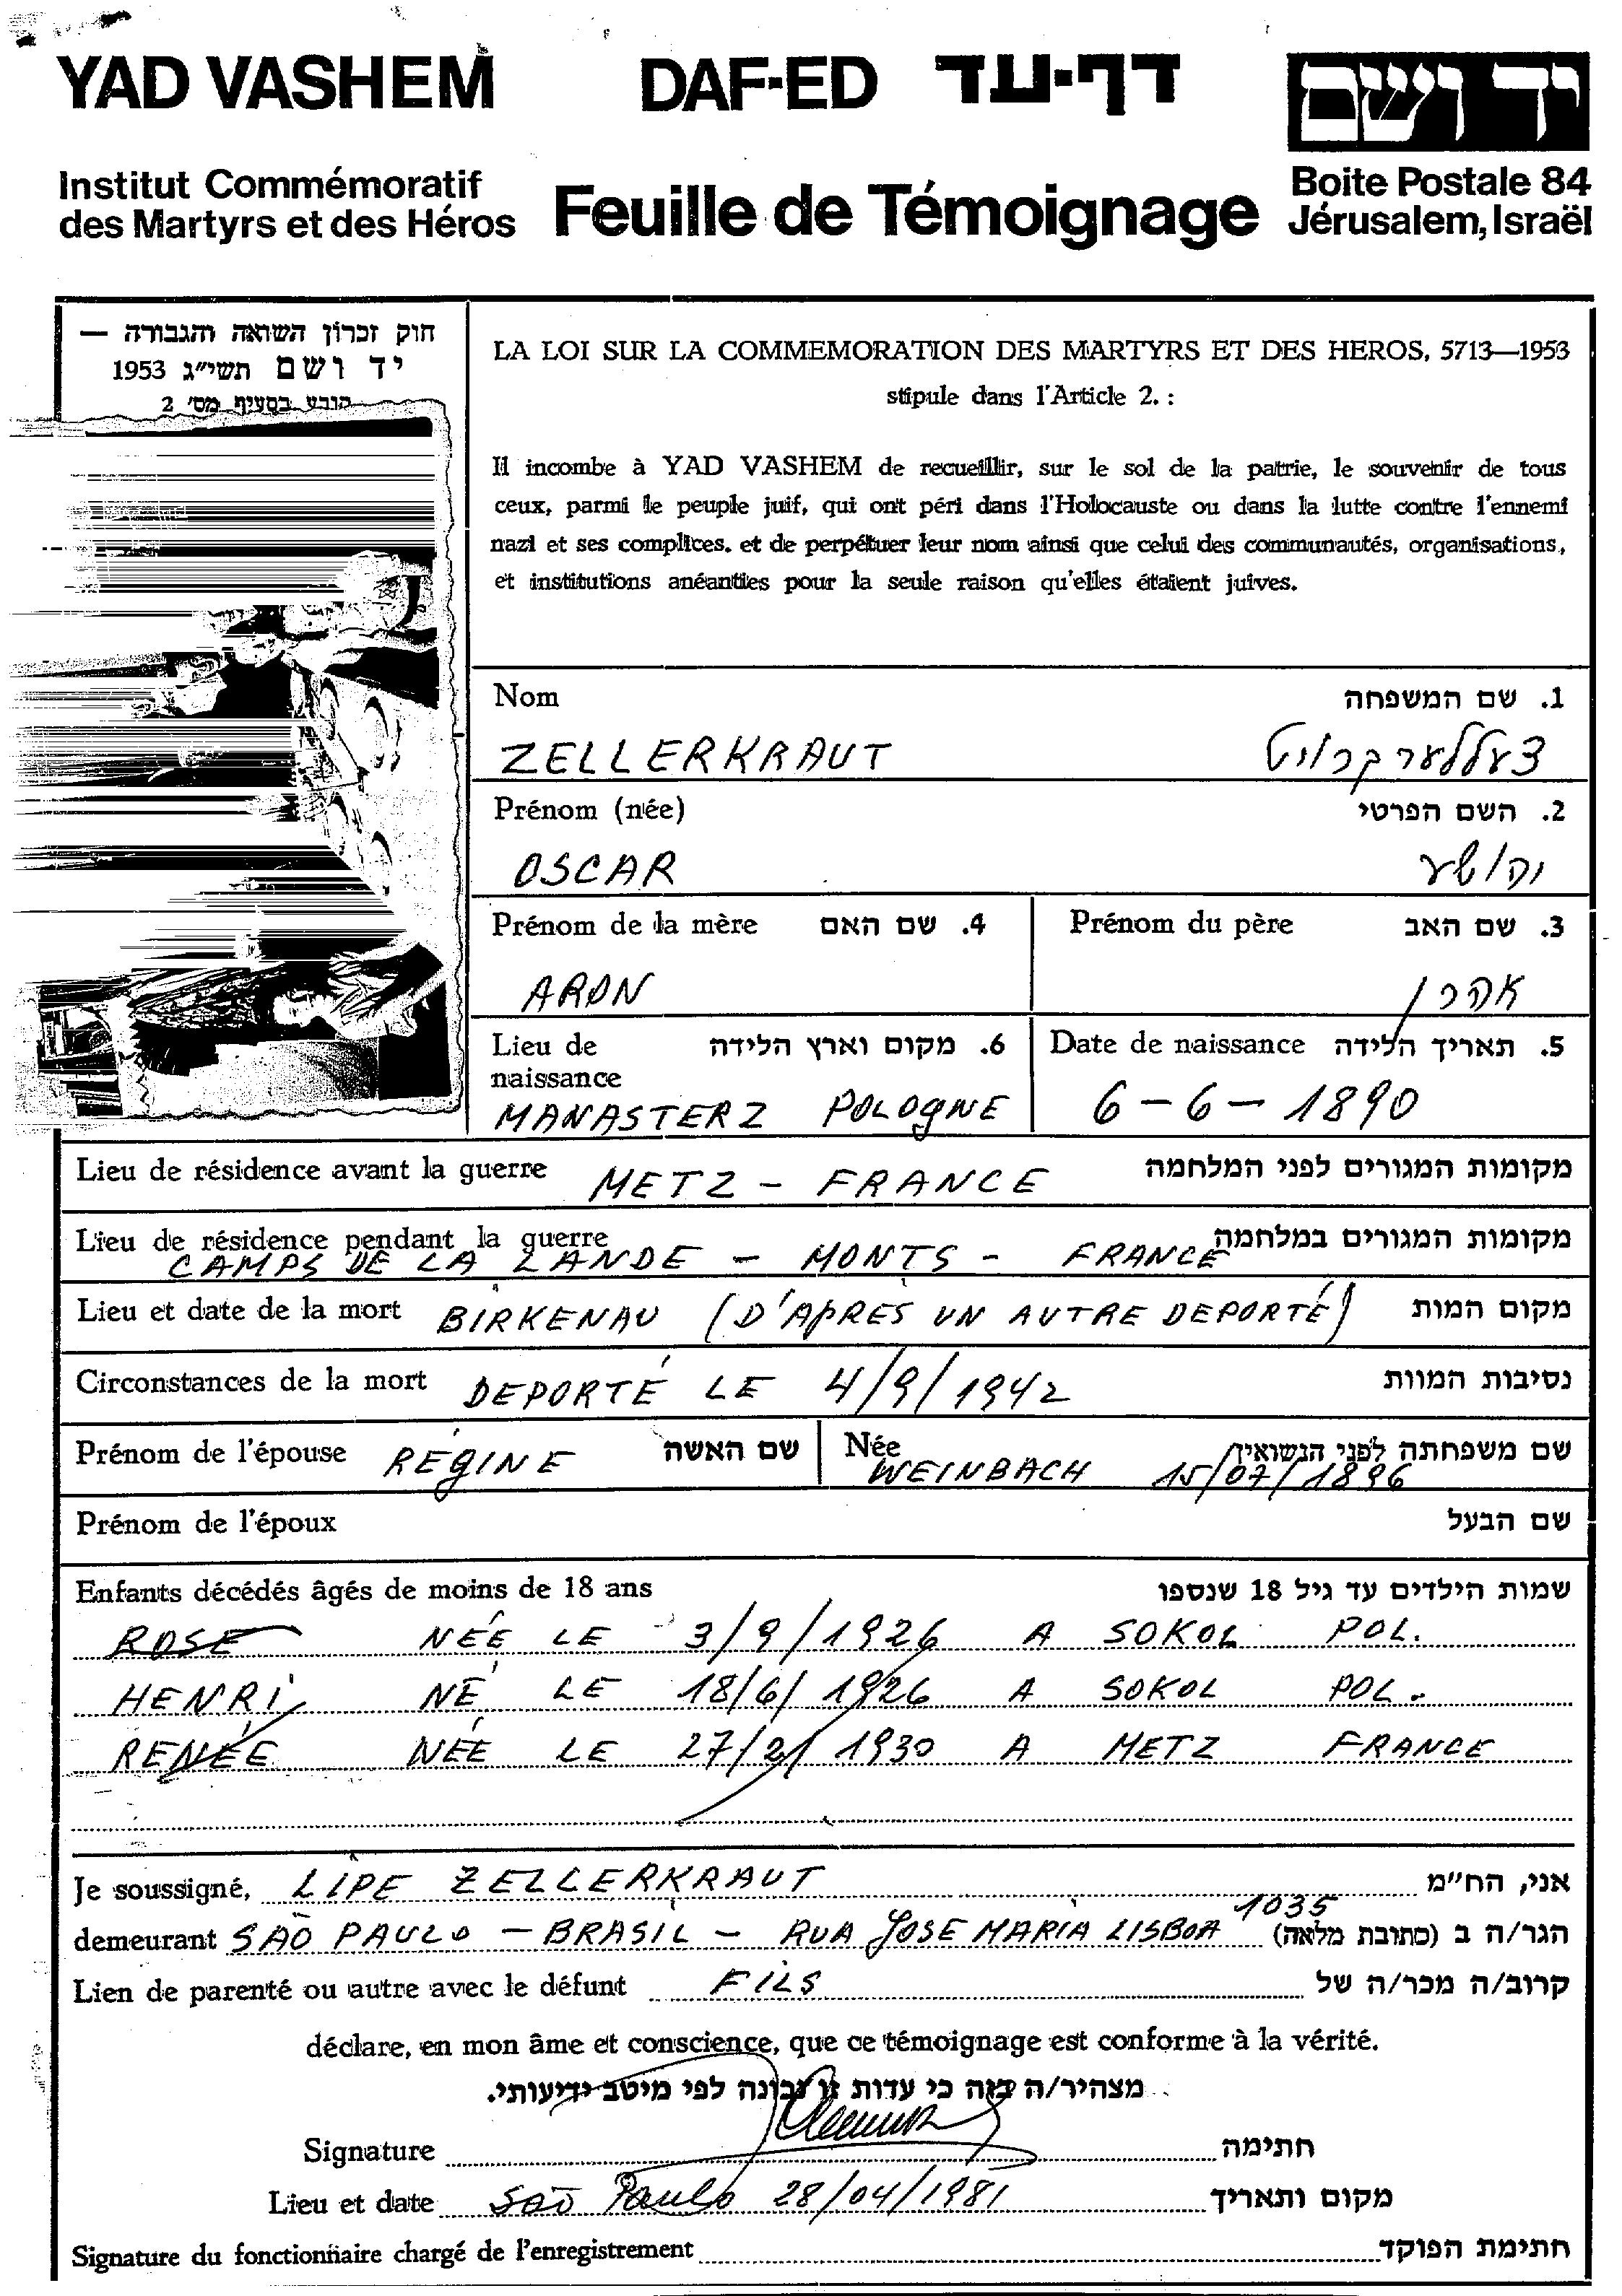 YAD VASHEM DAF-ED דף-עד יד ושם
Institut Commémoratif
des Martyrs et des Héros
Feuille de Témoignage
Boite Postale 84
Jérusalem, Israël
חוק זכרון השואה והגבורה —
יד ושם תשי"ג 1953
קובע בסעיף מס' 2
LA LOI SUR LA COMMEMORATION DES MARTYRS ET DES HEROS, 5713—1953
stipule dans l'Article 2. :
Il incombe à YAD VASHEM de recueillir, sur le sol de la patrie, le souvenir de tous
ceux, parmi le peuple juif, qui ont péri dans l'Holocauste ou dans la lutte contre l'ennemi
nazi et ses complices. et de perpétuer leur nom ainsi que celui des communautés, organisations,
et institutions anéanties pour la seule raison qu'elles étaient juives.
Nom 1. שם המשפחה
ZELLERKRAUT צעללערקרויט
Prénom (née) 2. השם הפרטי
OSCAR
Prénom de la mère 4. שם האם Prénom du père 3. שם האב
ARON אהרן
Lieu de naissance 6. מקום וארץ הלידה Date de naissance 5. תאריך הלידה
MANASTERZ POLOGNE 6-6-1890
Lieu de résidence avant la guerre METZ - FRANCE מקומות המגורים לפני המלחמה
Lieu de résidence pendant la guerre מקומות המגורים במלחמה
CAMPS DE LA LANDE - MONTS - FRANCE
Lieu et date de la mort BIRKENAU (D'APRÈS UN AUTRE DEPORTÉ) מקום המות
Circonstances de la mort DEPORTÉ LE 4/9/1942 נסיבות המוות
Prénom de l'épouse RÉGINE שם האשה Née WEINBACH 15/07/1896 שם משפחתה לפני הנשואין
Prénom de l'époux שם הבעל
Enfants décédés âgés de moins de 18 ans שמות הילדים עד גיל 18 שנספו
ROSE NÉE LE 3/9/1926 A SOKOL POL.
HENRI NÉ LE 18/6/1926 A SOKOL POL.
RENÉE NÉE LE 27/2/1930 A METZ FRANCE
Je soussigné, LIPE ZELLERKRAUT אני, הח"מ
demeurant SAÕ PAULO - BRASIL - RUA JOSE MARIA LISBOA 1035 הגר/ה ב (כתובת מלאה)
Lien de parenté ou autre avec le défunt FILS קרוב/ה מכר/ה של
déclare, en mon âme et conscience, que ce témoignage est conforme à la vérité.
מצהיר/ה בזה כי עדות זו נכונה לפי מיטב ידיעותי.
Signature חתימה
Lieu et date Saõ Paulo 28/04/1981 מקום ותאריך
Signature du fonctionnaire chargé de l'enregistrement חתימת הפוקד